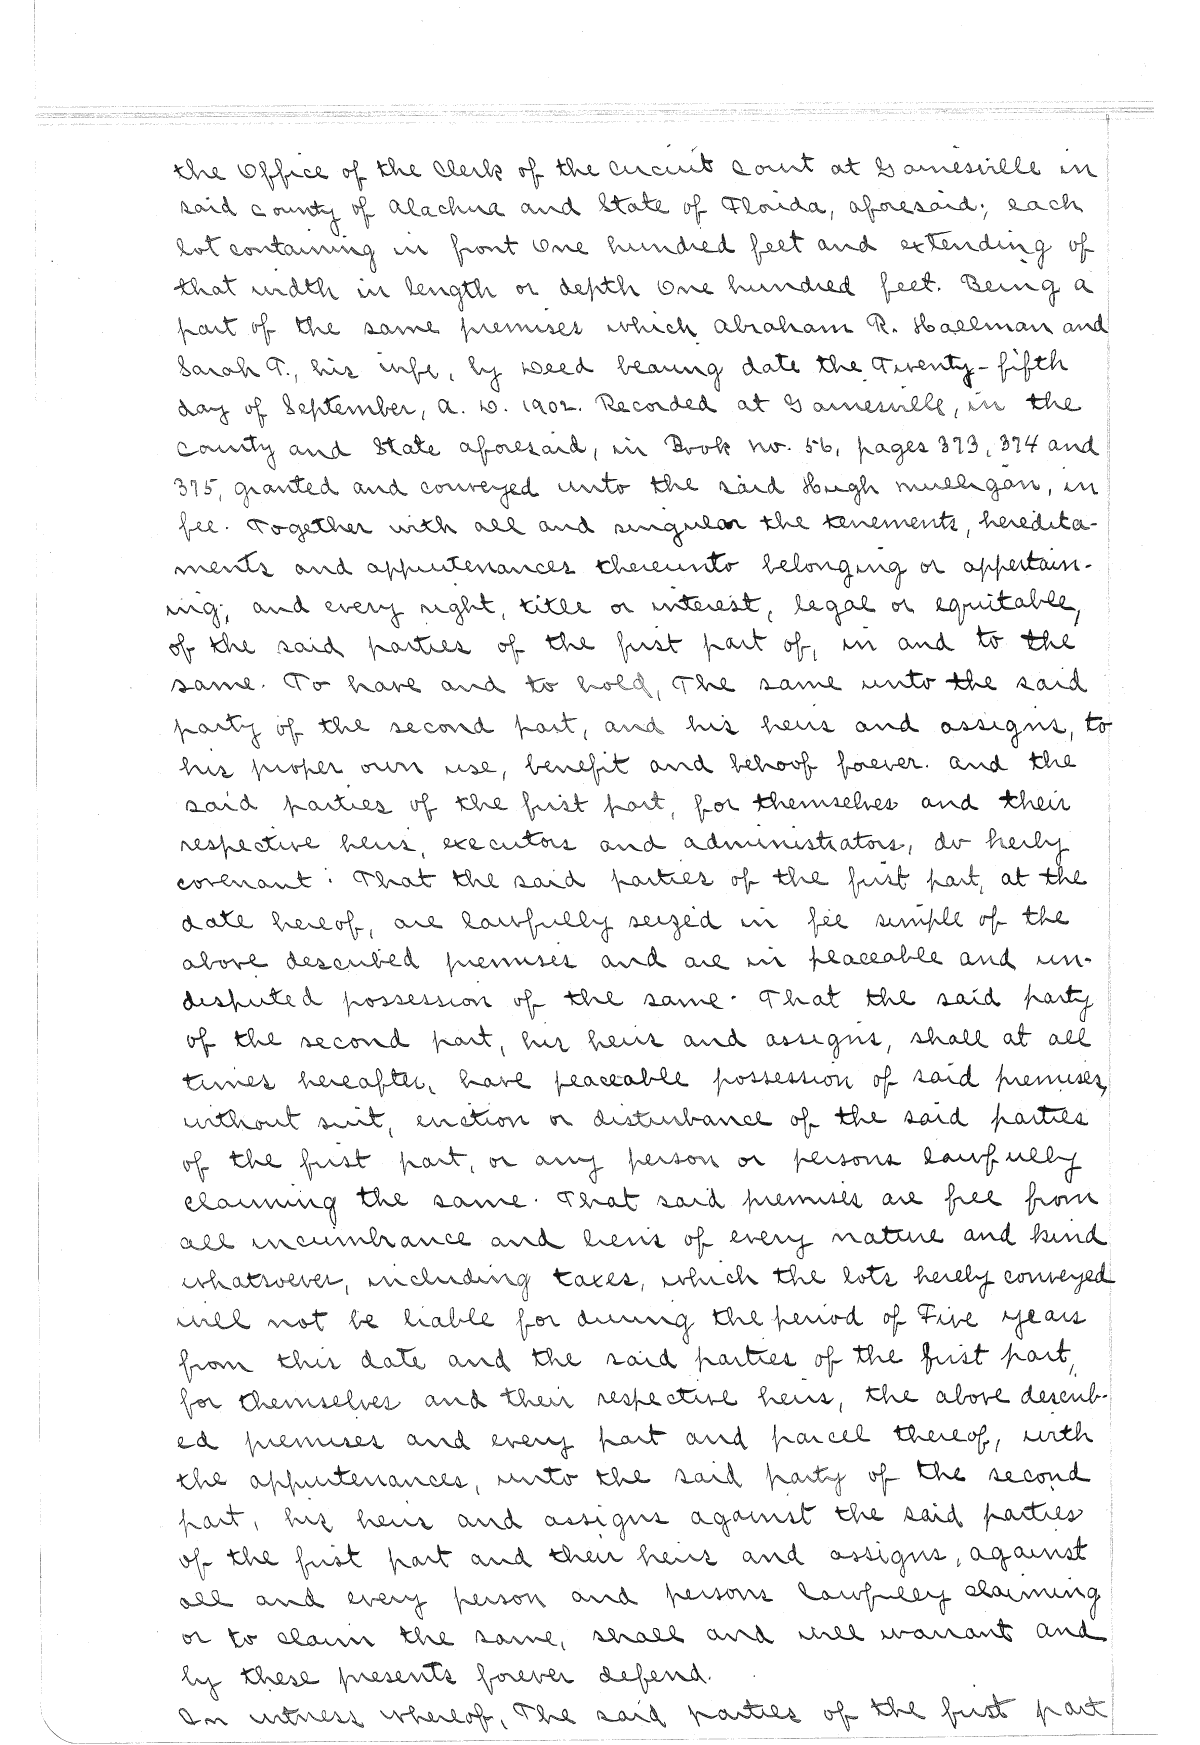 the Office of the Clerk of the Circuit Court at Gainesville in
said County of Alachua and State of Florida, aforesaid; each
lot containing in front One hundred feet and extending of
that width in length or depth One hundred feet. Being a
part of the same premises which Abraham R. Hallman and
Sarah T., his wife, by Deed bearing date the Twenty-fifth
day of September, A. D. 1902. Recorded at Gainesville, in the
County and State aforesaid, in Book No. 56, pages 373, 374 and
375, granted and conveyed unto the said Hugh Mulligan, in
fee. Together with all and singular the tenements, heredita-
ments and appurtenances thereunto belonging or appertain-
ing; and every right, title or interest, legal or equitable,
of the said parties of the first part of, in and to the
same. To have and to hold, The same unto the said
party of the second part, and his heirs and assigns, to
his proper own use, benefit and behoof forever. And the
said parties of the first part, for themselves and their
respective heirs, executors and administrators, do herby
covenant: That the said parties of the first part, at the
date hereof, are lawfully seized in fee simple of the
above described premises and are in peaceable and un-
disputed possession of the same. That the said party
of the second part, his heirs and assigns, shall at all
times hereafter, have peaceable possession of said premises,
without suit, eviction or disturbance of the said parties
of the first part, or any person or persons lawfully
claiming the same. That said premises are free from
all incumbrance and liens of every nature and kind
whatsoever, including taxes, which the lots herely conveyed
will not be liable for during the period of Five years
from this date and the said parties of the first part,
for themselves and their respective heirs, the above describ-
ed premises and every part and parcel thereof, with
the appurtenances, unto the said party of the second
part, his heirs and assigns against the said parties
of the first part and their heirs and assigns, against
all and every person and persons lawfully claiming
or to claim the same, shall and will warrant and
by these presents forever defend.
In witness whereof, The said parties of the first part